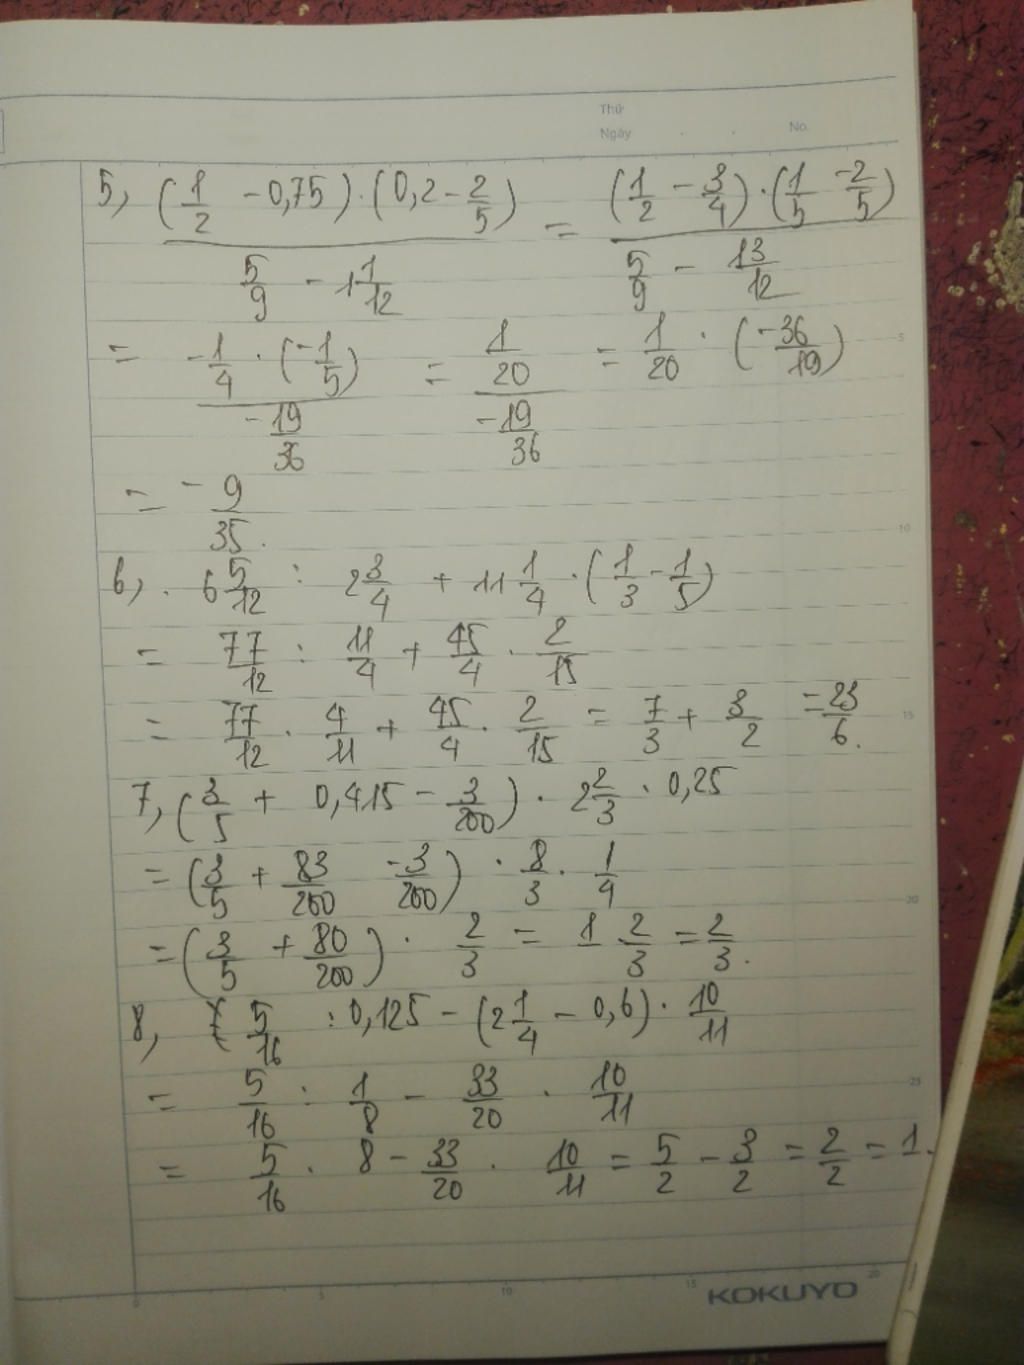 Thứ
Ngày . . No.
5, (1/2 - 0,75) . (0,2 - 2/5) / (5/9 - 1 1/12) = (1/2 - 3/4) . (1/5 - 2/5) / (5/9 - 13/12)
= -1/4 . (-1/5) / (-19/36) = 1/20 / (-19/36) = 1/20 . (-36/19)
= -9/35.
6, . 6 5/12 : 2 3/4 + 11 1/4 . (1/3 - 1/5)
= 77/12 : 11/4 + 45/4 . 2/15
= 77/12 . 4/11 + 45/4 . 2/15 = 7/3 + 3/2 = 23/6.
7, (3/5 + 0,415 - 3/200) . 2 2/3 . 0,25
= (3/5 + 83/200 - 3/200) . 8/3 . 1/4
= (3/5 + 80/200) . 2/3 = 1 2/3 = 2/3.
8, 5/16 : 0,125 - (2 1/4 - 0,6) . 10/11
= 5/16 : 1/8 - 33/20 . 10/11
= 5/16 . 8 - 33/20 . 10/11 = 5/2 - 3/2 = 2/2 = 1.
KOKUYO